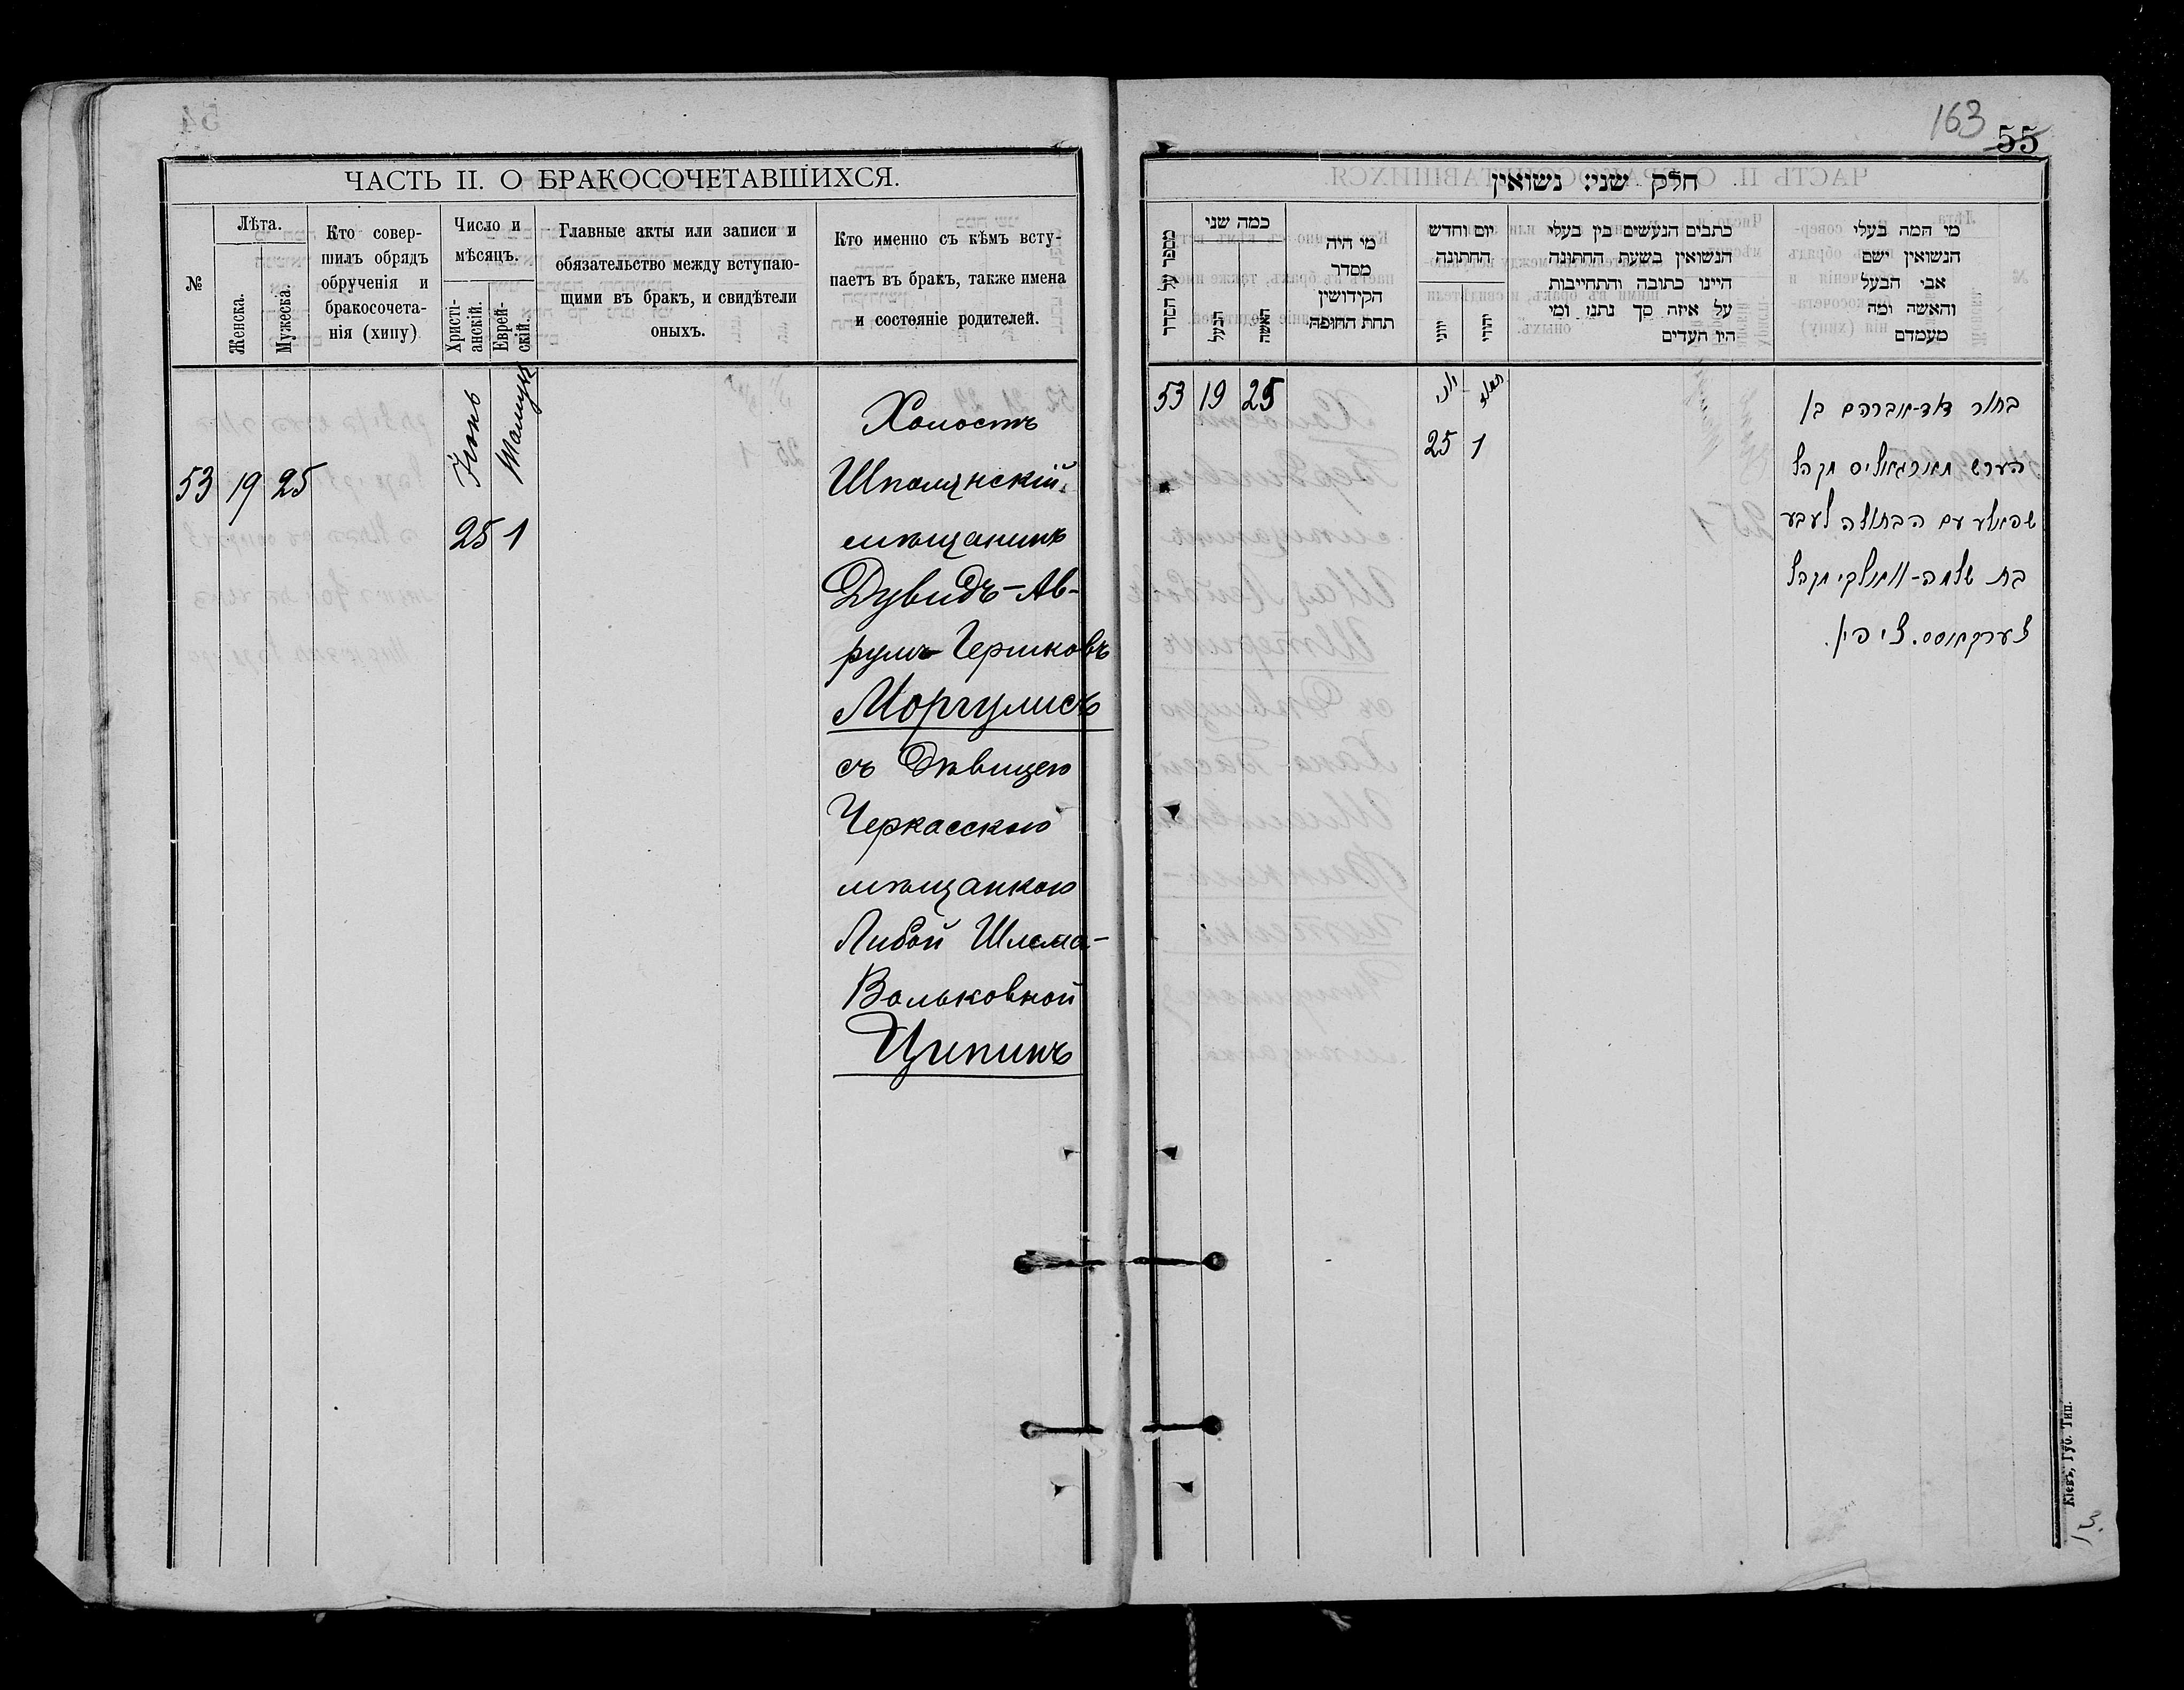 ЧАСТЬ II. О БРАКОСОЧЕТАВШИХСЯ.
№
Лѣта.
Женска.
Мужеска.
Кто совер-
шилъ обрядъ
обрученія и
бракосочета-
нія (хипу)
Число и
мѣсяцъ.
Христі-
анскій.
Еврей-
скій.
Главные акты или записи и
обязательство между вступаю-
щими въ бракъ, и свидѣтели
оныхъ.
Кто именно съ кѣмъ всту-
паетъ въ бракъ, также имена
и состояніе родителей.
53 19 25
Іюнь
25
Тамузъ
1
Холостъ
Шполянскій
мѣщанинъ
Дувидъ-Ав-
румъ Гершковъ
Моргулисъ
съ Дѣвицею
Черкасскою
мѣщанкою
Либой Шлема-
Вольковной
Ципинъ
163
55
חלק שני: נשואין
מספר על הסדר
כמה שני
הבעל
האשה
מי היה
מסדר
הקידושין
תחת החופה
יום וחדש
החתונה
יווני
יהודי
כתבים הנעשים בין בעלי
הנשואין בשעת החתונה
היינו כתובה והתחייבות
על איזה סך נתנו ומי
היו העדים
מי המה בעלי
הנשואין ושם
אבי הבעל
והאשה ומה
מעמדם
53 19 25
יוני
25
תמוז
1
בחור דוד-אברהם בן
הערש מארגאליס מקהל
שפאלע עם הבתולה ליבע
בת שלמה-וואלקי מקהל
טערקאסס. ציפין.
Кіевъ, Губ. Тип.